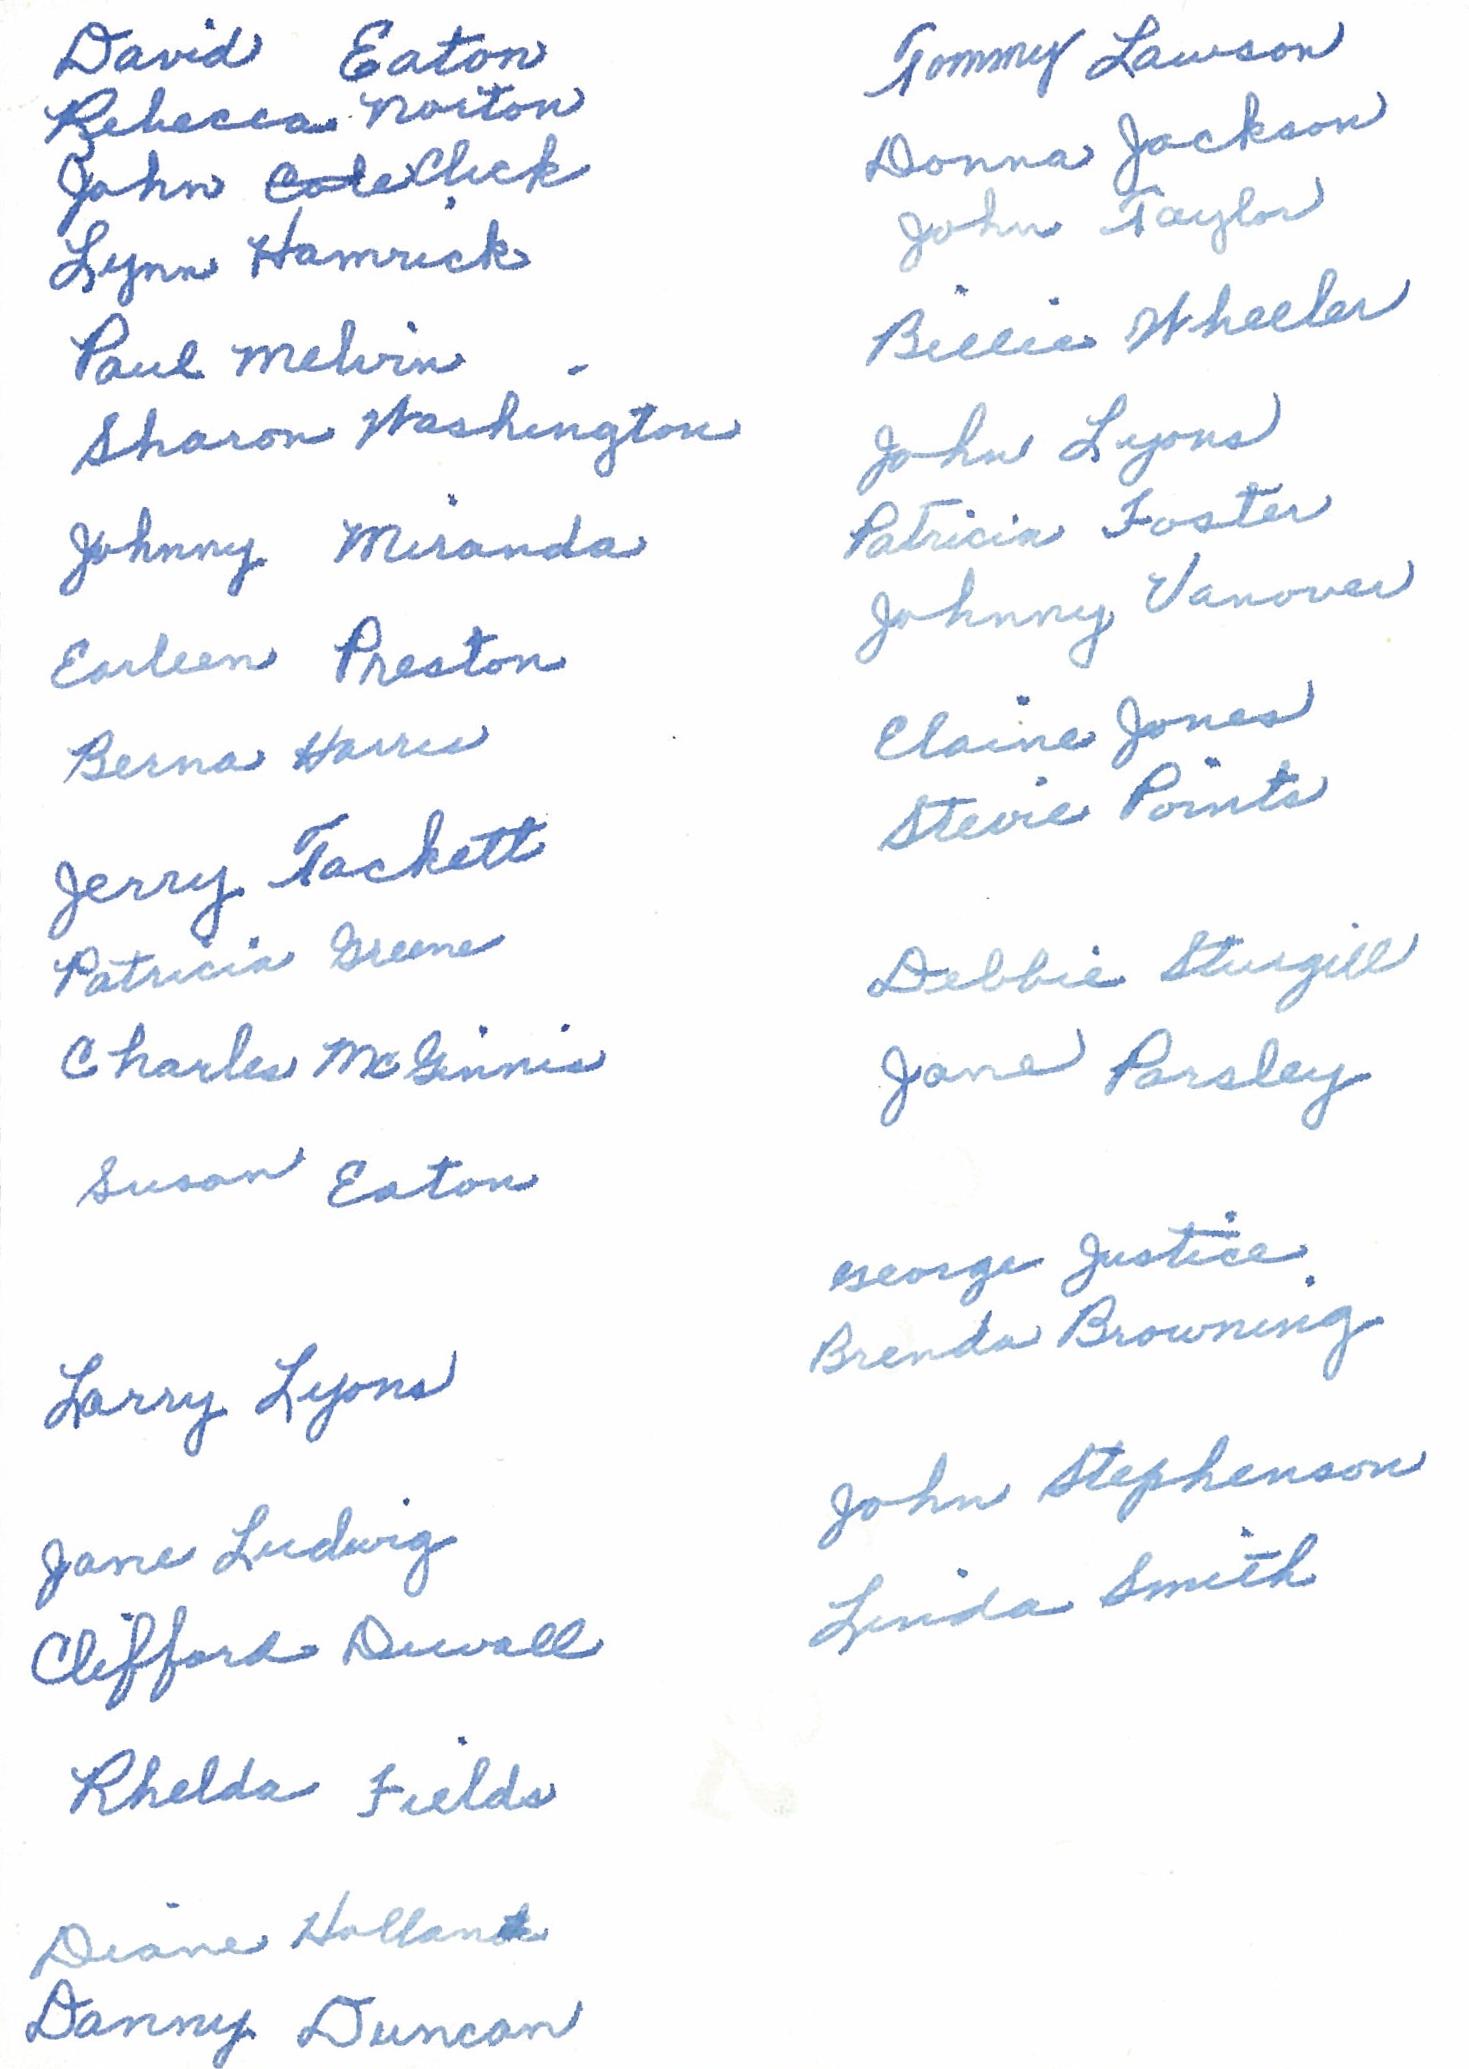 David Eaton
Rebecca Norton
John Cole Click
Lynn Hamrick
Paul Melvin
Sharon Washington
Johnny Miranda
Earleen Preston
Berna Harris
Jerry Tackett
Patricia Greene
Charles McGinnis
Susan Eaton
Larry Lyons
Jane Ludwig
Clifford Duvall
Rhelda Fields
Diane Holland
Danny Duncan
Tommy Lawson
Donna Jackson
John Taylor
Billie Wheeler
John Lyons
Patricia Foster
Johnny Vanover
Elaine Jones
Stevie Points
Debbie Sturgill
Jane Parsley
George Justice
Brenda Browning
John Stephenson
Linda Smith